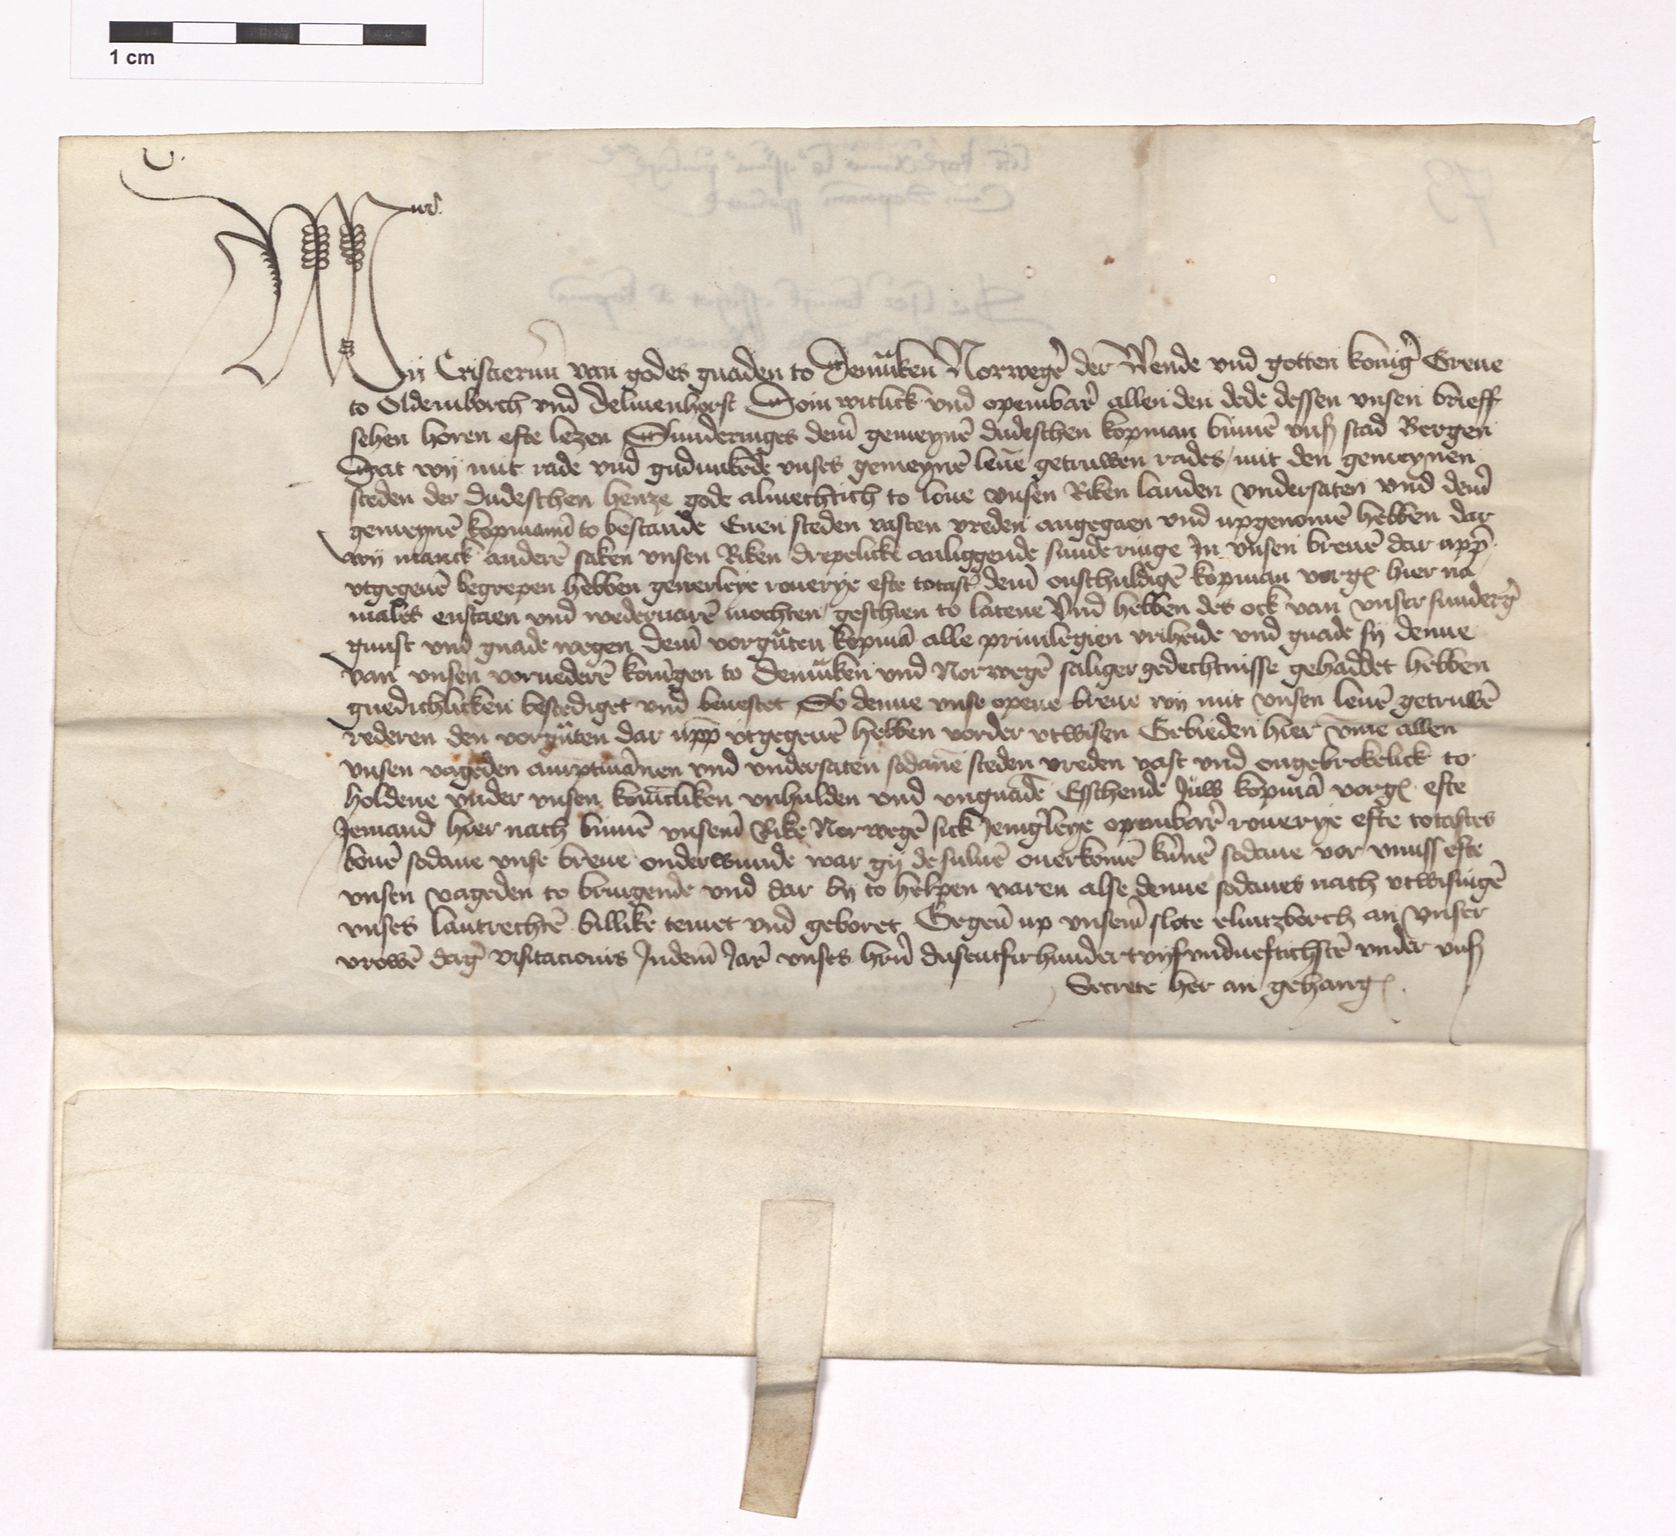 1 cm
Wij Cristiernn van godes gnaden to Denmͣken Norwegeͬ der Wende vnd gotten koningͬ Greue
to Oldemborch vnd delmenhorst Doin witlick vnd openbarͬ allen den dede dessen vnsen brieff
sehen horen efte lezen Sunderinges dem̄ gemeynē dudeschen kopman binnē vnß stad Bergen
Dat wij mit rade vnd gudunkēde vnses gemeynē leuē getruwen rades / mit den gemeynen
steden der dudeschen henze gode almechtich to loue vnsen Riken landen vndersaten vnd dem̄
gemeynē kopmann̄ to bestande Euen steden vasten vreden angegaen vnd upgenomē hebben dar
wij manck anderē saken vnsen Riken drepelicke anliggende sunderinge In vnsen breuē dar upp̄
vtgegeuē begrepen hebben generleye rouerye efte totast dem̄ onschuldigē kopman vorgͬ hier na
mals enstaen vnd wederuarē mochten geschien to latene Vnd hebben des ock van vnser sundergͬ
gunst vnd gnade wegen dem̄ vorgͣten kopmā alle priuilegien vriheide vnd gnade sij denne
van vnsen voruederē konīgen to Denmͣken vnd Norwegē saliger gedechtnisse gehaddet hebben
gnedichlicken bestediget vnd beuestet So denne vnse opene breue wij mit vnsen leuē getruwē
rederen den vorgͣten dar upp̄ vtgegeuē hebben vorder vtwisen Gebieden hier vm̄e allen
vnsen vageden amptmānen vnd vndersaten sodanē steden vreden vast vnd ongebrokelick to
holdene vnder vnsen konīcliken vnhulden vnd vngnadē Esschende Juw kopmā vorgͬ efte
Jemand hier nach binnē vnsem̄ Rike Norwegē sick Jenigͬleye openbarͬ rouerye efte totastes
bouē sodane vnse breue onderwunde war gij de suluē ouerkomē kūnē sodane vor vnnss efte
vnsen vageden to bringende vnd dar by to helpen varen alse denne sodanes nach vtwisingē
vnses lantrechtē billike temet vnd geboret Gegeuē up vnsem̄ slote elmtzborch an vnser
vrowē dagͬ visitacionis Jndem̄ Jarͬ vnses hrn̄ dusentfirhundertvijfvndueftichstē vnder vnß
Secrete her an gehangͬ